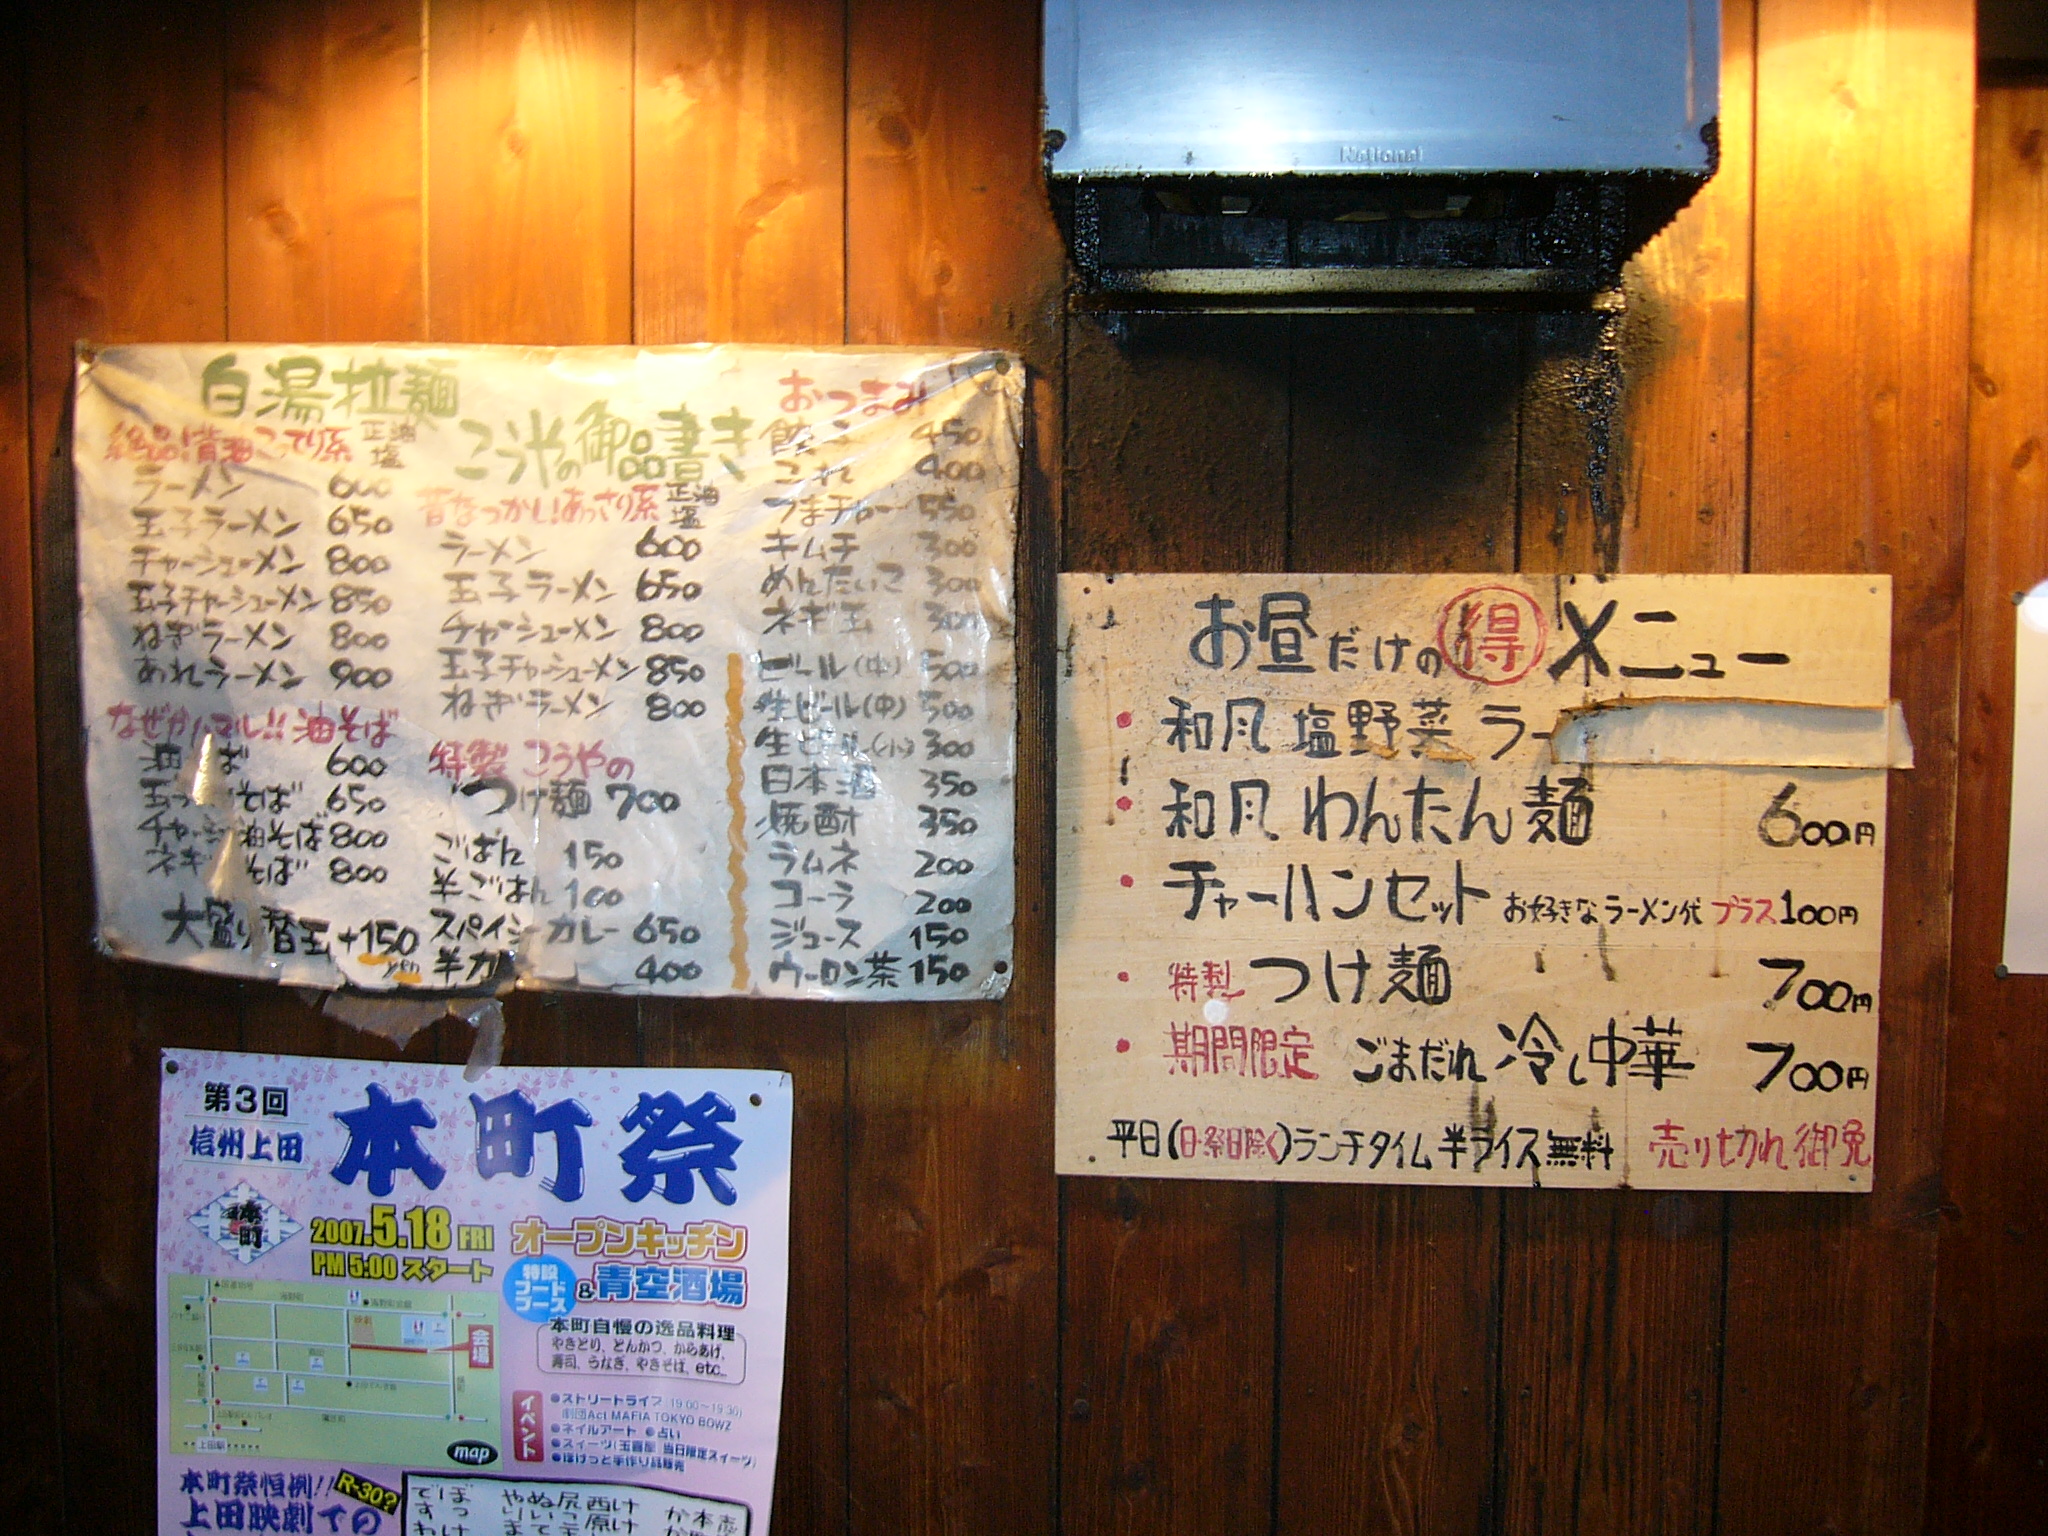 National
白湯拉麺
こうやの御品書き
絶品!背油こってり系 正油 塩
ラーメン 600
玉子ラーメン 650
チャーシューメン 800
玉子チャーシューメン 850
ねぎラーメン 800
あれラーメン 900
なぜかハマル!!油そば
油 ば 600
玉 そば 650
チャー 油そば 800
ネギ そば 800
大盛り 替玉 +150 yen
昔なつかし!あっさり系 正油 塩
ラーメン 600
玉子ラーメン 650
チャーシューメン 800
玉子チャーシューメン 850
ねぎラーメン 800
特製 こうやの
つけ麺 700
ごはん 150
半ごはん 100
スパイシーカレー 650
半カ 400
おつまみ
餃子 450
これ 400
つまチャー 550
キムチ 300
めんたいこ 300
ネギ玉 300
ビール(中) 500
生ビール(中) 500
生ビール(小) 300
日本酒 350
焼酎 350
ラムネ 200
コーラ 200
ジュース 150
ウーロン茶 150
お昼だけの得メニュー
和風 塩野菜 ラー
和風 わんたん麺 600円
チャーハンセット お好きなラーメン代 プラス100円
特製 つけ麺 700円
期間限定 ごまだれ 冷し中華 700円
平日(日・祭日除く)ランチタイム半ライス無料 売り切れ御免
第3回
信州上田
本町祭
本町
2007.5.18 FRI
PM 5:00 スタート
オープンキッチン
特設フードブース
&青空酒場
本町自慢の逸品料理
やきとり、とんかつ、からあげ、
寿司、うなぎ、やきそば、etc...
会場
上田駅
map
イベント
●ストリートライブ(19:00〜19:30)
劇団Act MAFIA TOKYO BOWZ
●ネイルアート ●占い
●スイーツ(玉喜屋 当日限定スイーツ)
●ほけっと手作り品販売
本町祭恒例!! R-30?
上田映劇での